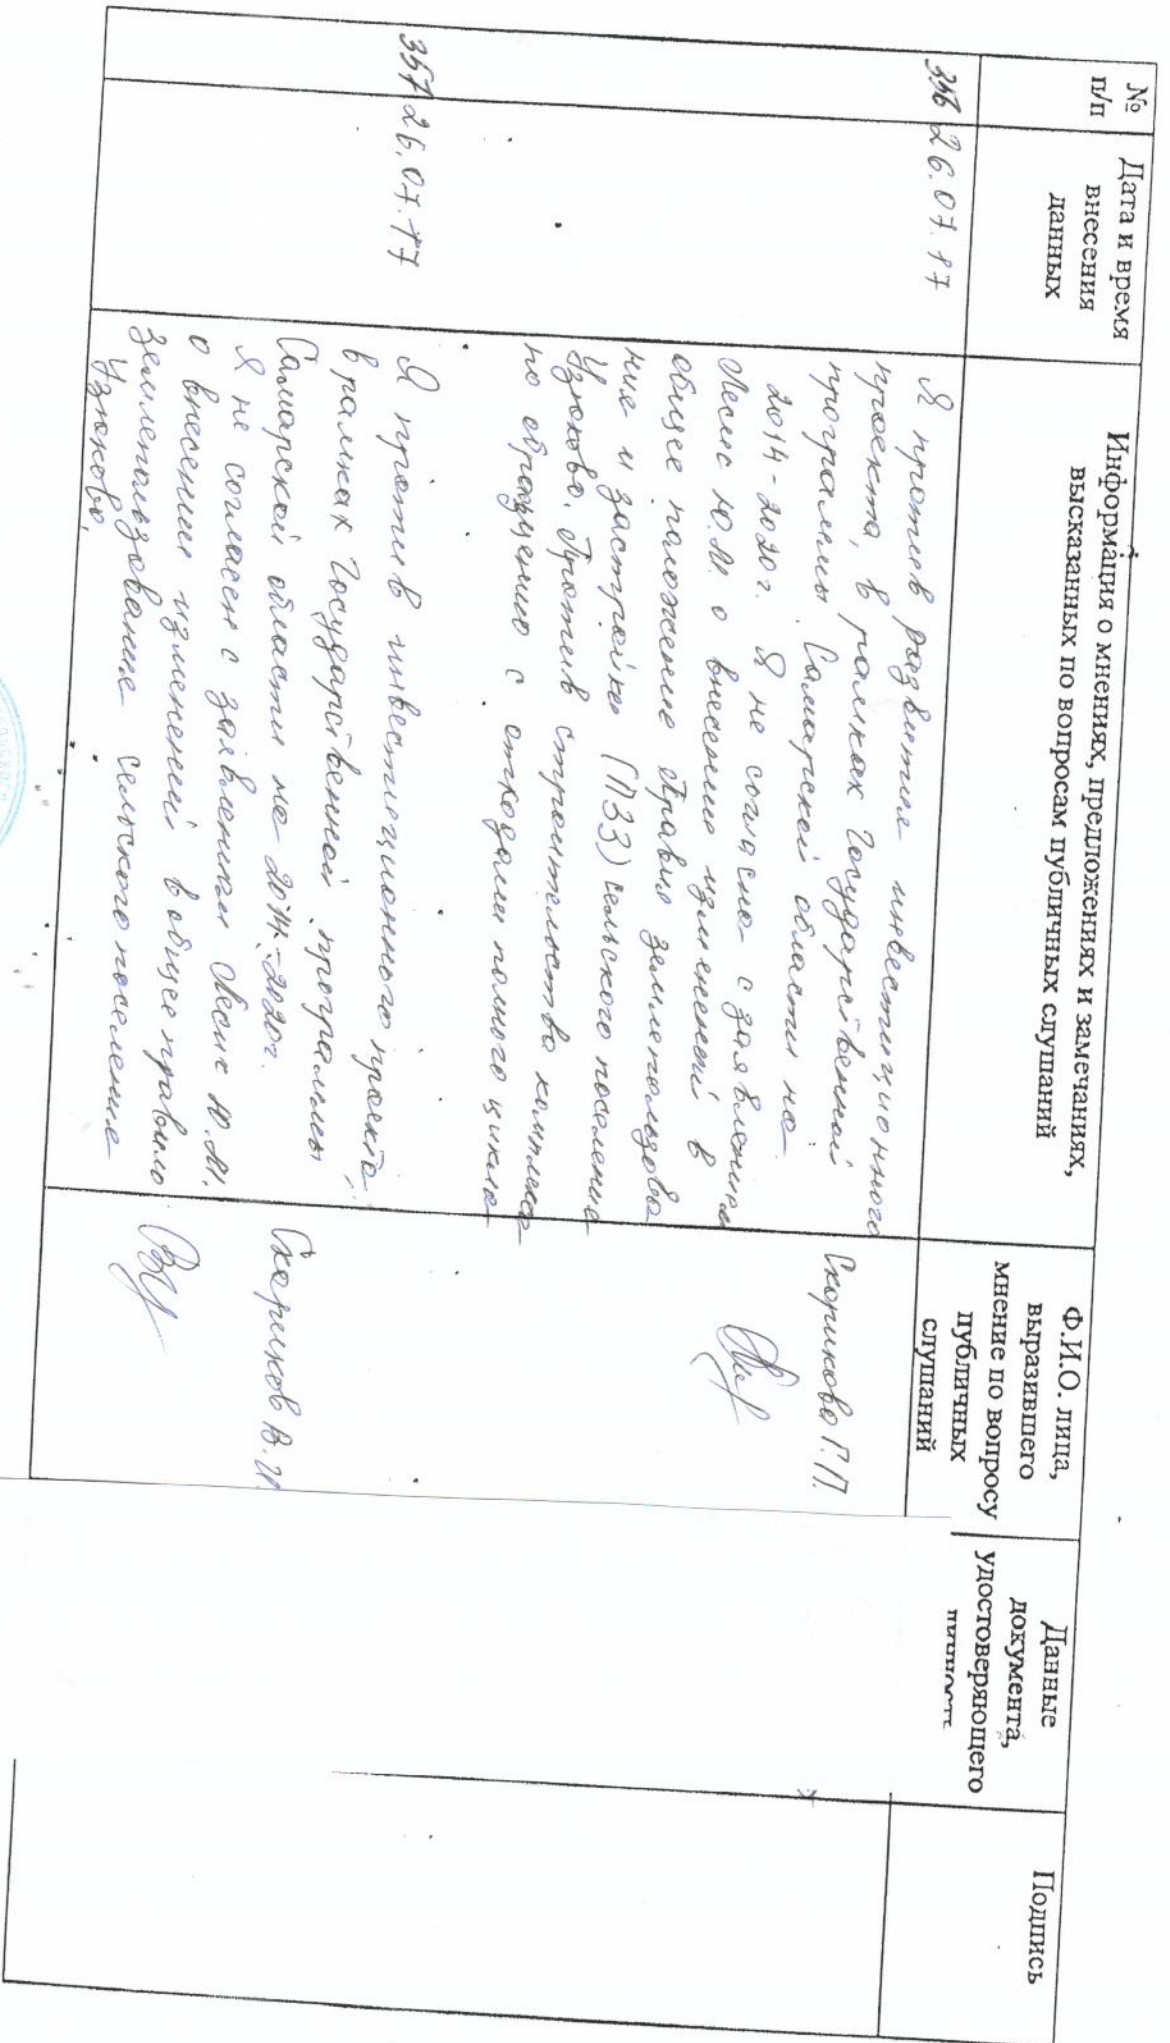 №
п/п
Дата и время
внесения
данных
Информация о мнениях, предложениях и замечаниях,
высказанных по вопросам публичных слушаний
Ф.И.О. лица,
выразившего
мнение по вопросу
публичных
слушаний
Данные
документа,
удостоверяющего
личность
Подпись
356
26.07.17
Я против развития инвестиционного
проекта, в рамках Государственной
программы Самарской области на
2014-2020г. Я не согласна с заявлением
Лесис Ю.М. о внесении изменений в
общее положение Правил землепользова
ние и застройка (ПЗЗ) сельского поселение
Узюково. Против строительства комплекса
по обращению с отходами полного цикла
Скорикова Г.П.
357
26.07.17
Я против инвестиционного проекта
в рамках Государственной программы
Самарской области на 2014-2020г.
Я не согласен с заявлением Лесис Ю.М.
о внесении изменений в общее правило
землепользование сельского поселение
Узюково.
Скориков В.И.